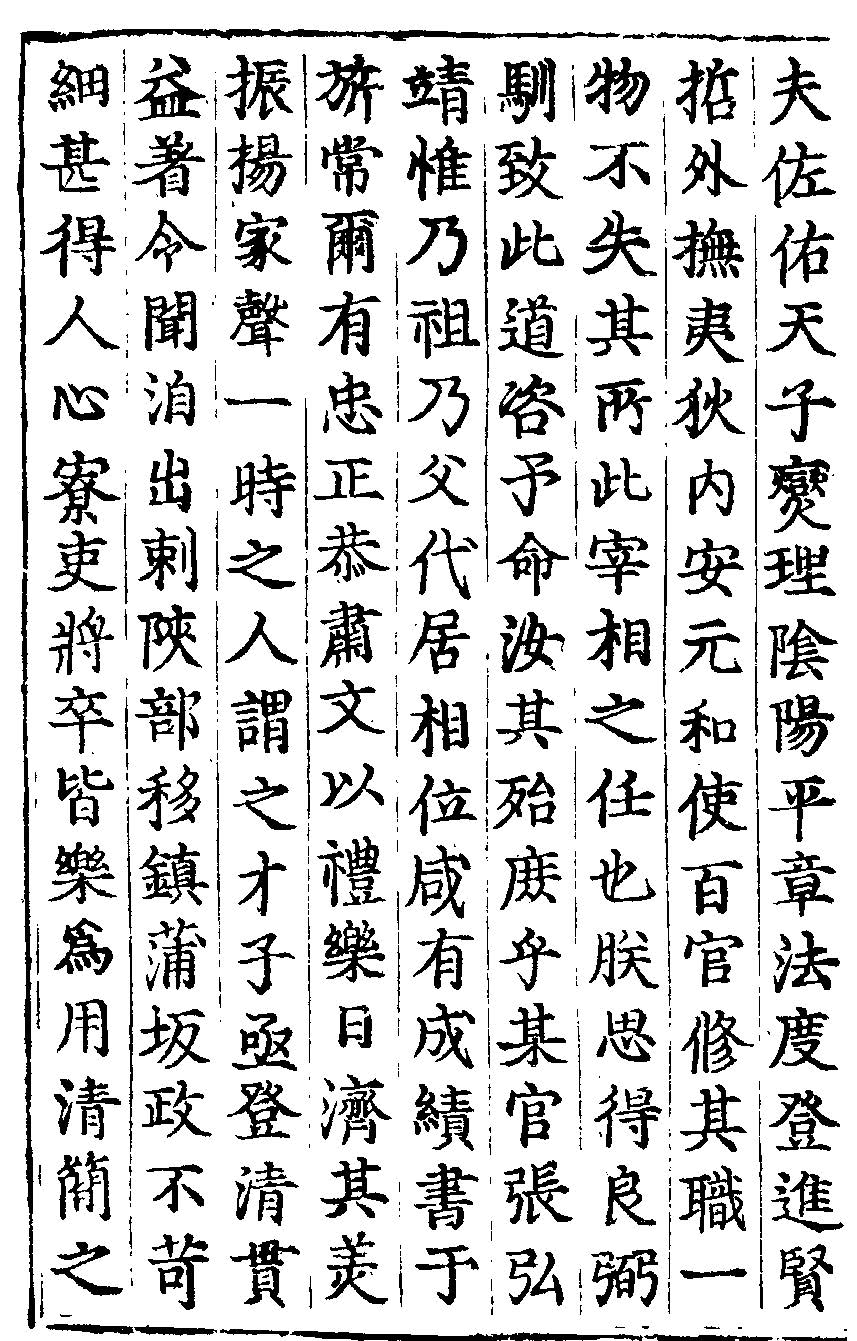 夫佐佑天子燮理陰陽平章法度登進賢
哲外撫夷狄内安元和使百官脩其職一
物不失其所此宰相之任也朕思得良弼
馴致此道咨予命汝其殆庶乎某官張弘
靖惟乃祖乃父代居相位咸有成績書于
旂常爾有忠正恭肅文以禮樂日濟其美
振揚家聲一時之人謂之才子亟登清貫
益著令聞洎出剌陜部移鎮蒲坂政不苛
細甚得人心寮吏將卒皆樂爲用清簡之